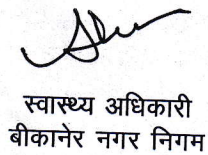 स्वास्थ्य अधिकारी
बीकानेर नगर निगम